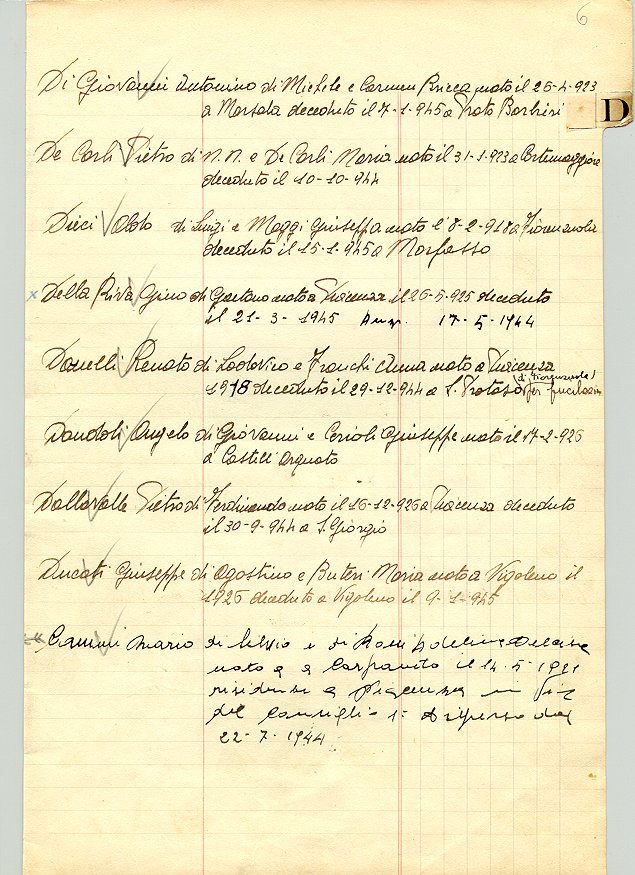 6
D
Di Giovanni Antonino di Michele e Carmen nato il 26-4-923
a Marsala deceduto il 7-1-945 a Prato Barbieri
De Carli Pietro di N.N. e De Carli Maria nato il 31-1-923 a Cortemaggiore
deceduto il 10-10-944
Dieci Aldo di Luigi e Maggi Giuseppa nato l'8-2-918 a Fiorenzuola
deceduto il 15-1-945 a Morfasso
x Della Riva Gino di Gaetano nato a Piacenza il 26-5-925 deceduto
il 21-3-1945 17-5-1944
Donelli Renato di Lodovico e Franchi Anna nato a Piacenza
(di Fiorenzuola)
1918 deceduto il 29-12-944 a S. Protaso per fucilazione
Dandoli Angelo di Giovanni e Cerioli Giuseppe nato il 17-2-926
a Castell'Arquato
Dallavalle Pietro di Ferdinando nato il 16-12-926 a Piacenza deceduto
il 30-9-944 a S. Giorgio
Ducati Giuseppe di Agostino e Buteri Maria nato a Vigoleno il
1926 deceduto a Vigoleno il 9-1-945
Mario di e di Rossi
nato a a Carpaneto il 14-5-19
residenza a Piacenza in Via
del Consiglio 1° Disperso dal
22-7-1944